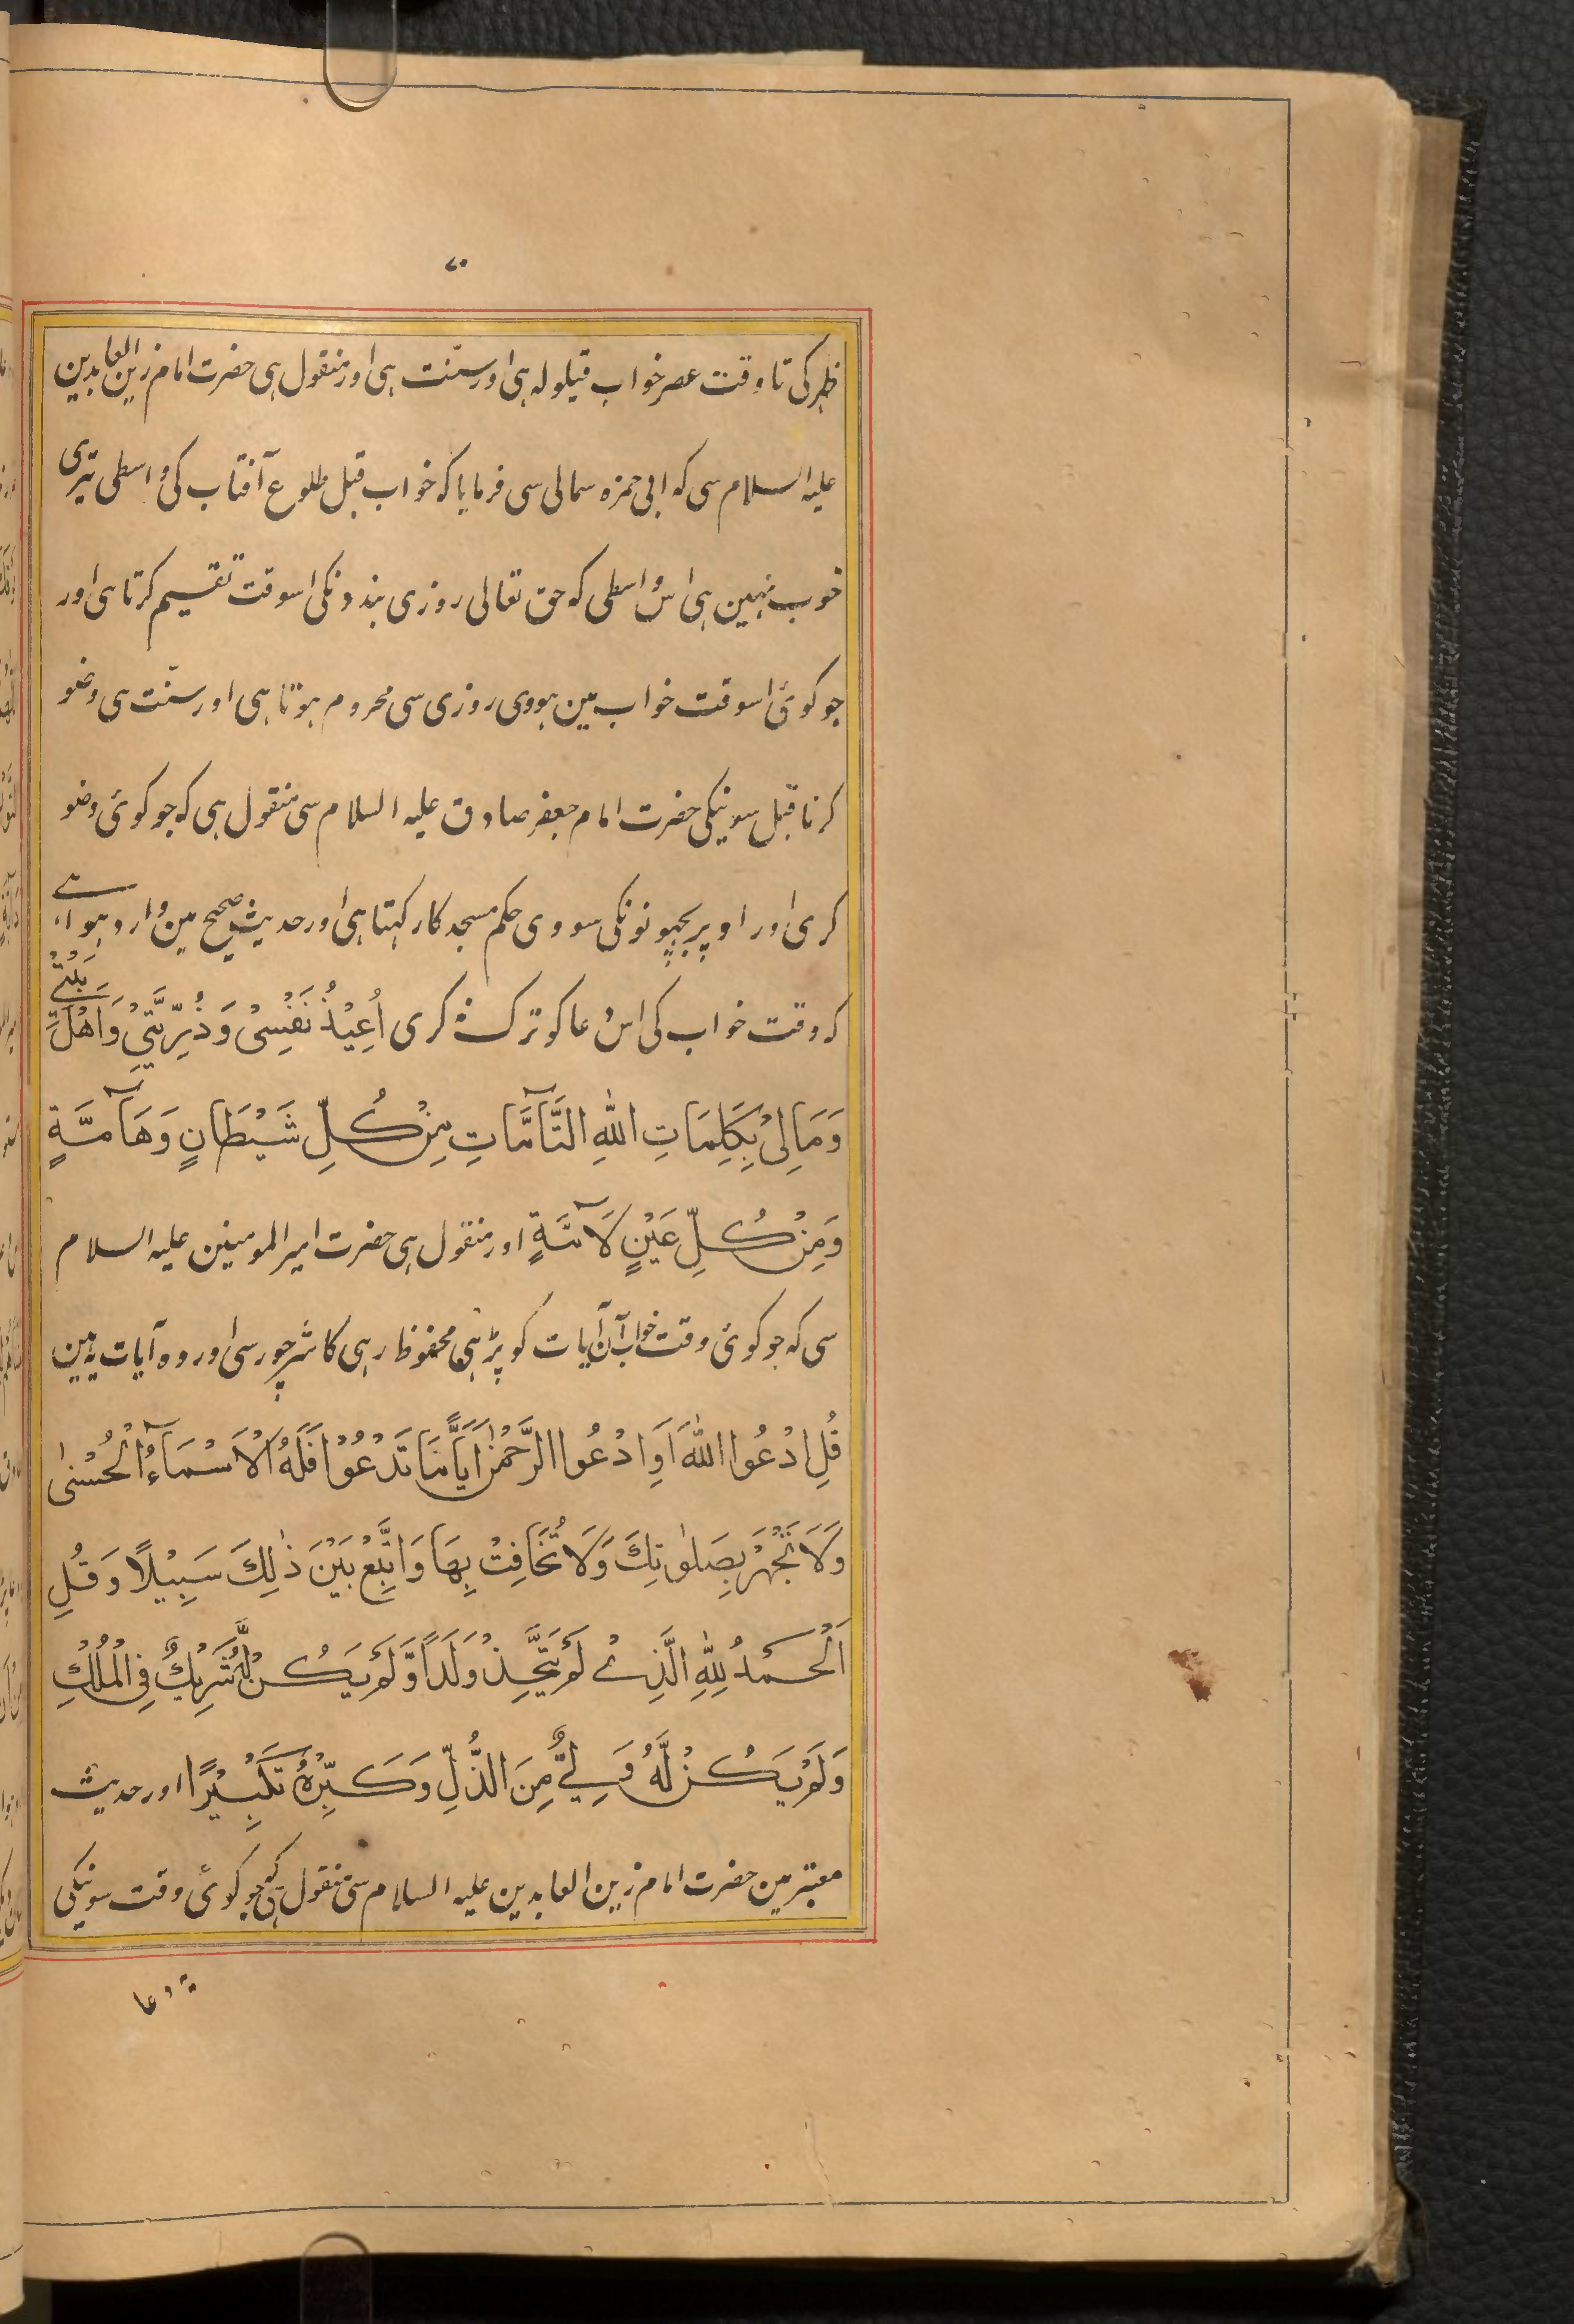 ۷۰
ظہر کی تا وقت عصر خواب قیلولہ ہی اور سنّت ہی اور منقول ہی حضرت امام زین العابدین
علیہ السلام سی کہ ابی حمزہ سمالی سی فرمایا کہ خواب قبل طلوع آفتاب کی واسطی تیری
خوب نہین ہی اس واسطی کہ حق تعالی روزی بندونکی اسوقت تقسیم کرتا ہی اور
جو کوئی اسوقت خواب مین ہووی روزی سی محروم ہوتا ہی اور سنّت ہی وضو
کرنا قبل سونیکی حضرت امام جعفر صادق علیہ السلام سی منقول ہی کہ جو کوئی وضو
کری اور اوپر بچھونونکی سووی حکم مسجد کا رکہتا ہی اور حدیث صحیح مین وارد ہوا ہے
کہ وقت خواب کی اس دعا کو ترک نہ کری اُعِيْذُ نَفْسِىْ وَذُرِّيَّتِىْ وَاَهْلَ بَيْتِىْ
وَمَالِىْ بِكَلِمَاتِ اللّٰهِ التَّآمَّاتِ مِنْ كُلِّ شَيْطَانٍ وَهَآمَّةٍ
وَمِنْ كُلِّ عَيْنٍ لَآمَّةٍ اور منقول ہی حضرت امیر المومنین علیہ السلام
سی کہ جو کوئی وقت خواب ان آیات کو پڑہی محفوظ رہی کا شر چور سی اور وہ آیات یہ ہین
قُلِ ادْعُوا اللّٰهَ اَوِ ادْعُوا الرَّحْمٰنَ اَيًّا مَّا تَدْعُوْا فَلَهُ الْاَسْمَآءُ الْحُسْنٰى
وَلَا تَجْهَرْ بِصَلٰوتِكَ وَلَا تُخَافِتْ بِهَا وَابْتَغِ بَيْنَ ذٰلِكَ سَبِيْلًا وَقُلِ
الْحَمْدُ لِلّٰهِ الَّذِىْ لَمْ يَتَّخِذْ وَلَدًا وَّلَمْ يَكُنْ لَّهٗ شَرِيْكٌ فِى الْمُلْكِ
وَلَمْ يَكُنْ لَّهٗ وَلِىٌّ مِّنَ الذُّلِّ وَكَبِّرْهُ تَكْبِيْرًا اور حدیث
معتبر مین حضرت امام زین العابدین علیہ السلام سی منقول ہی کہ جو کوئی وقت سونیکی
یہ دعا